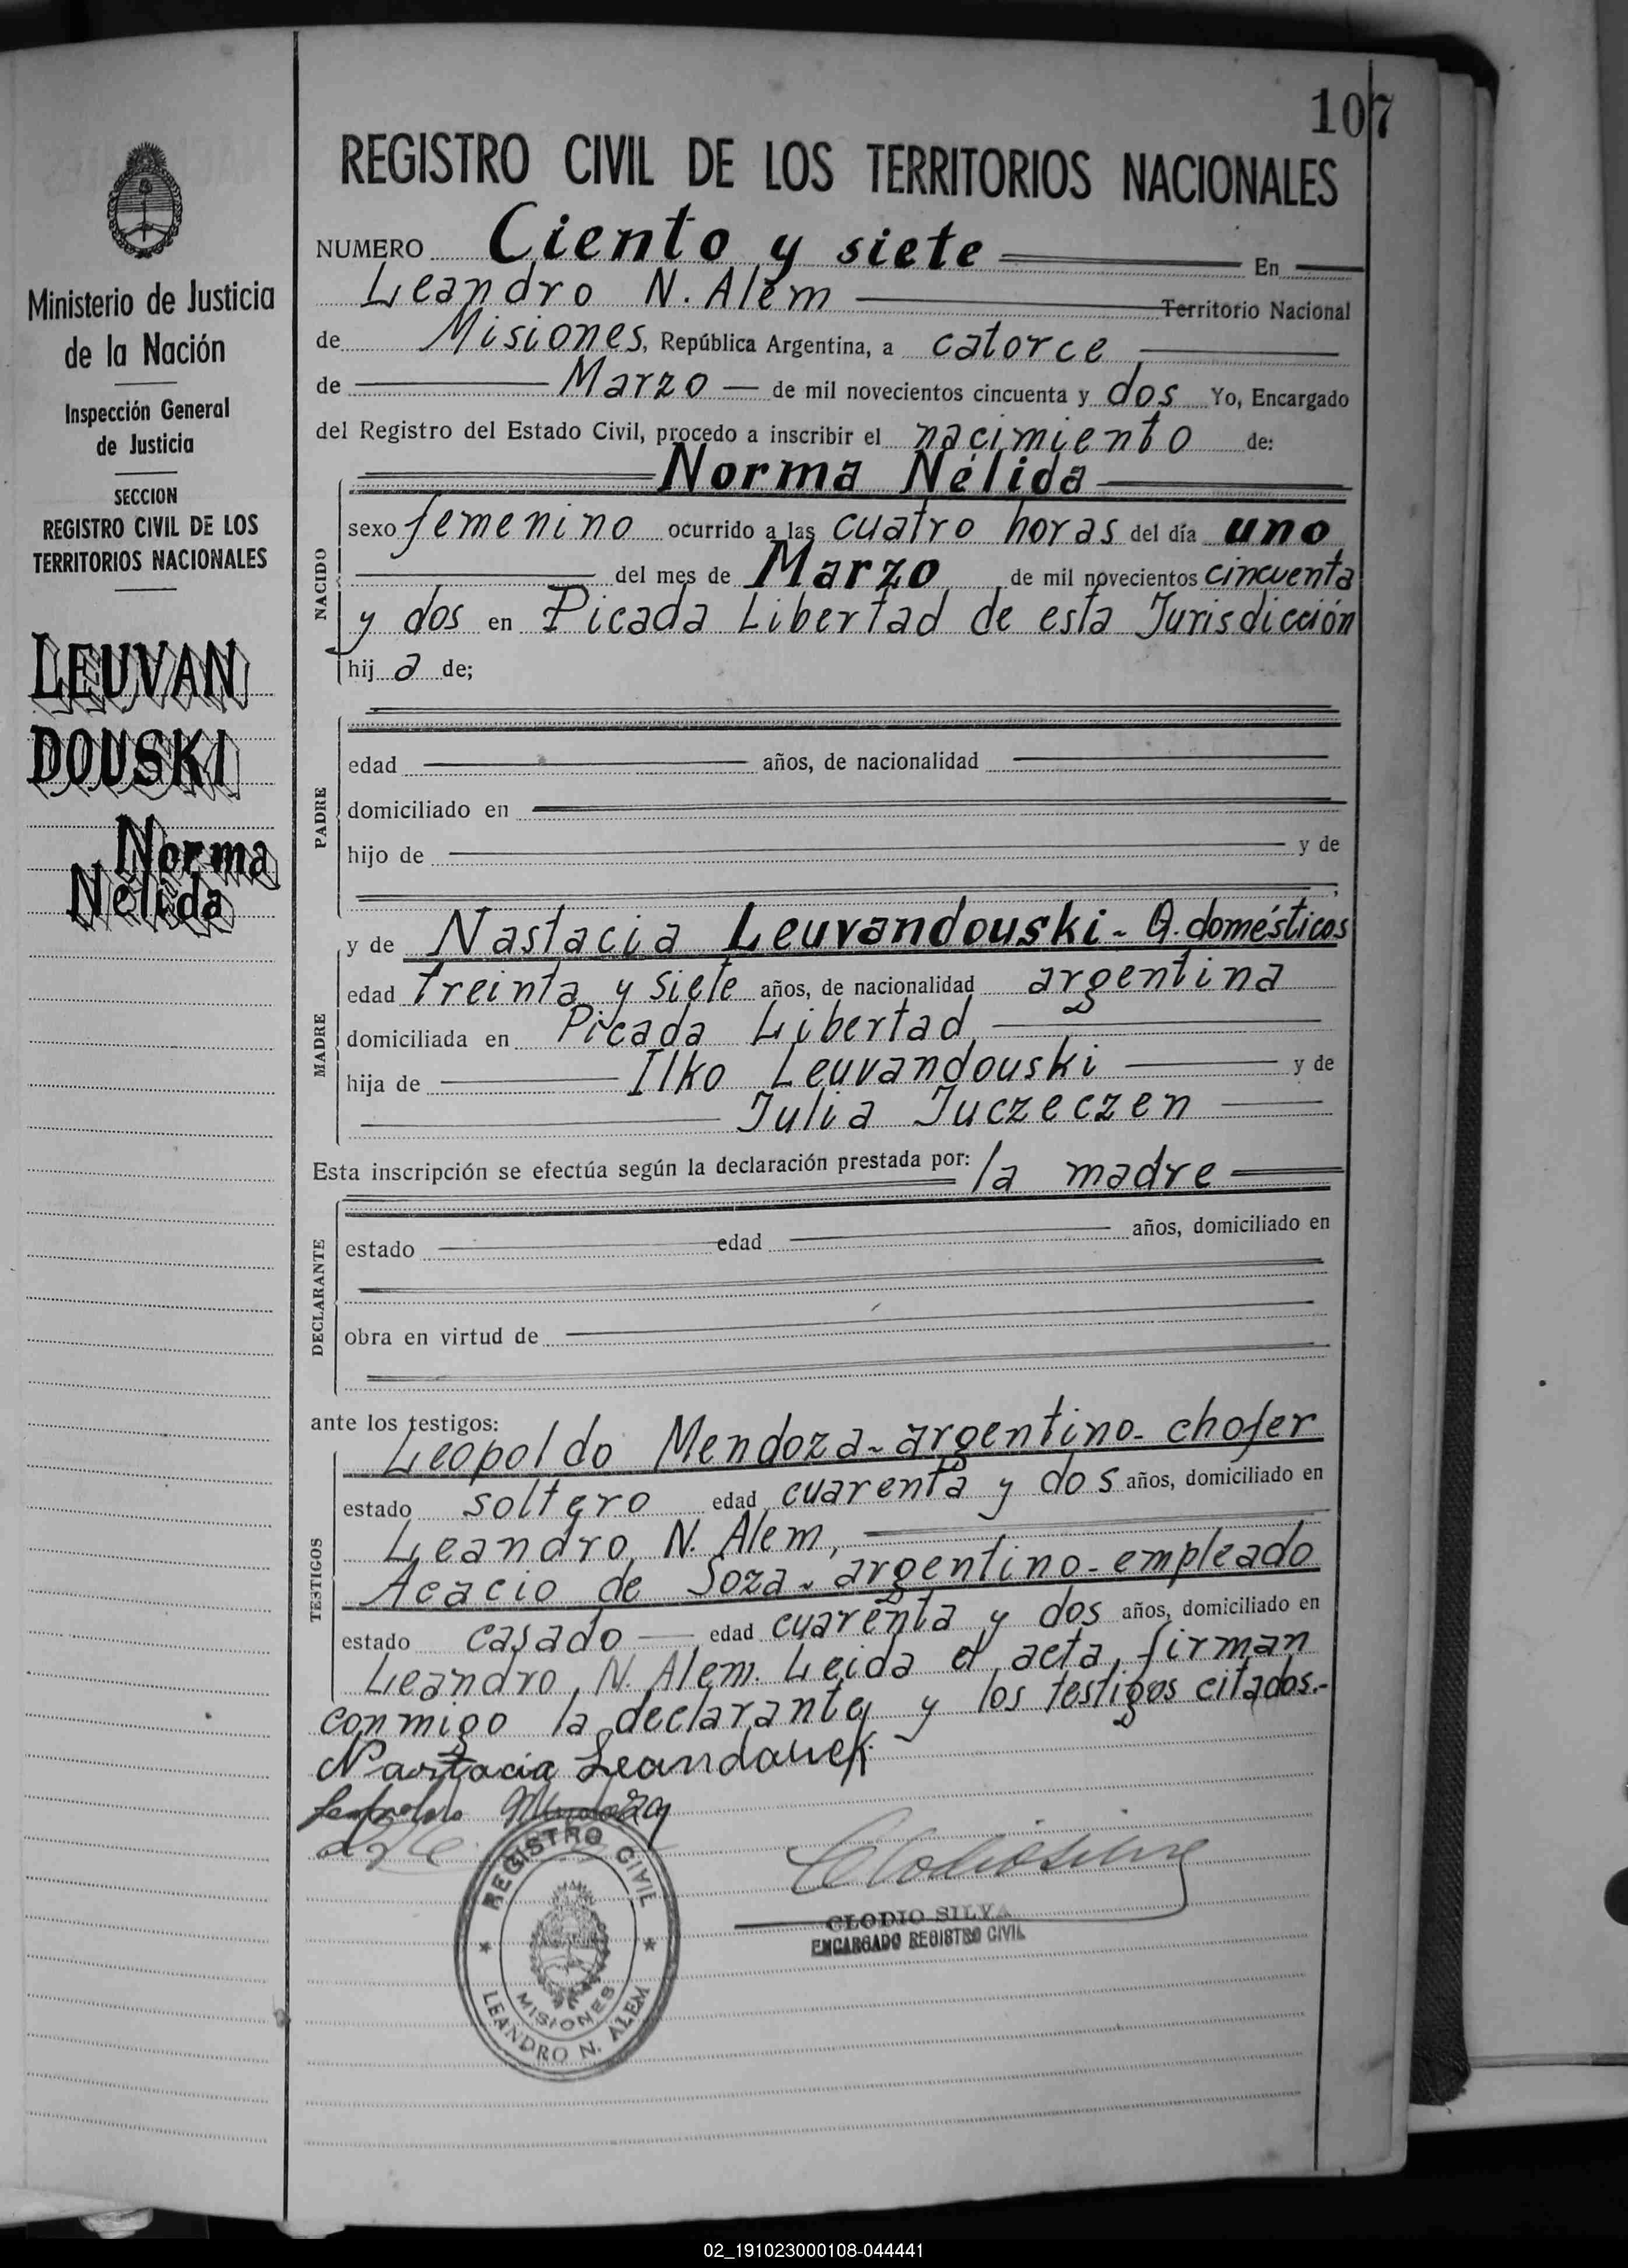 107
REGISTRO CIVIL DE LOS TERRITORIOS NACIONALES
Ministerio de Justicia
de la Nación
Inspección General
de Justicia
SECCION
REGISTRO CIVIL DE LOS
TERRITORIOS NACIONALES
LEUVAN
DOUSKI
Norma
Nélida
NUMERO Ciento y siete En
Leandro N. Alem Territorio Nacional
de Misiones, República Argentina, a catorce
de Marzo de mil novecientos cincuenta y dos Yo, Encargado
del Registro del Estado Civil, procedo a inscribir el nacimiento de:
Norma Nélida
NACIDO
sexo femenino ocurrido a las cuatro horas del día uno
del mes de Marzo de mil novecientos cincuenta
y dos en Picada Libertad de esta Jurisdicción
hija de;
PADRE
edad años, de nacionalidad
domiciliado en
hijo de y de
MADRE
y de Nastacia Leuvandouski - Q. domésticos
edad treinta y siete años, de nacionalidad argentina
domiciliada en Picada Libertad
hija de Ilko Leuvandouski y de
Julia Juczeczen
Esta inscripción se efectúa según la declaración prestada por: la madre
DECLARANTE
estado edad años, domiciliado en
obra en virtud de
ante los testigos:
TESTIGOS
Leopoldo Mendoza - argentino - chofer
estado soltero edad cuarenta y dos años, domiciliado en
Leandro N. Alem,
Acacio de Soza - argentino - empleado
estado casado edad cuarenta y dos años, domiciliado en
Leandro N. Alem. Leida el acta, firman
conmigo la declarante y los testigos citados.-
Nastacia
Mendoza
REGISTRO CIVIL
MISIONES
LEANDRO N. ALEM
CLODIO SILVA
ENCARGADO REGISTRO CIVIL
02_191023000108-044441